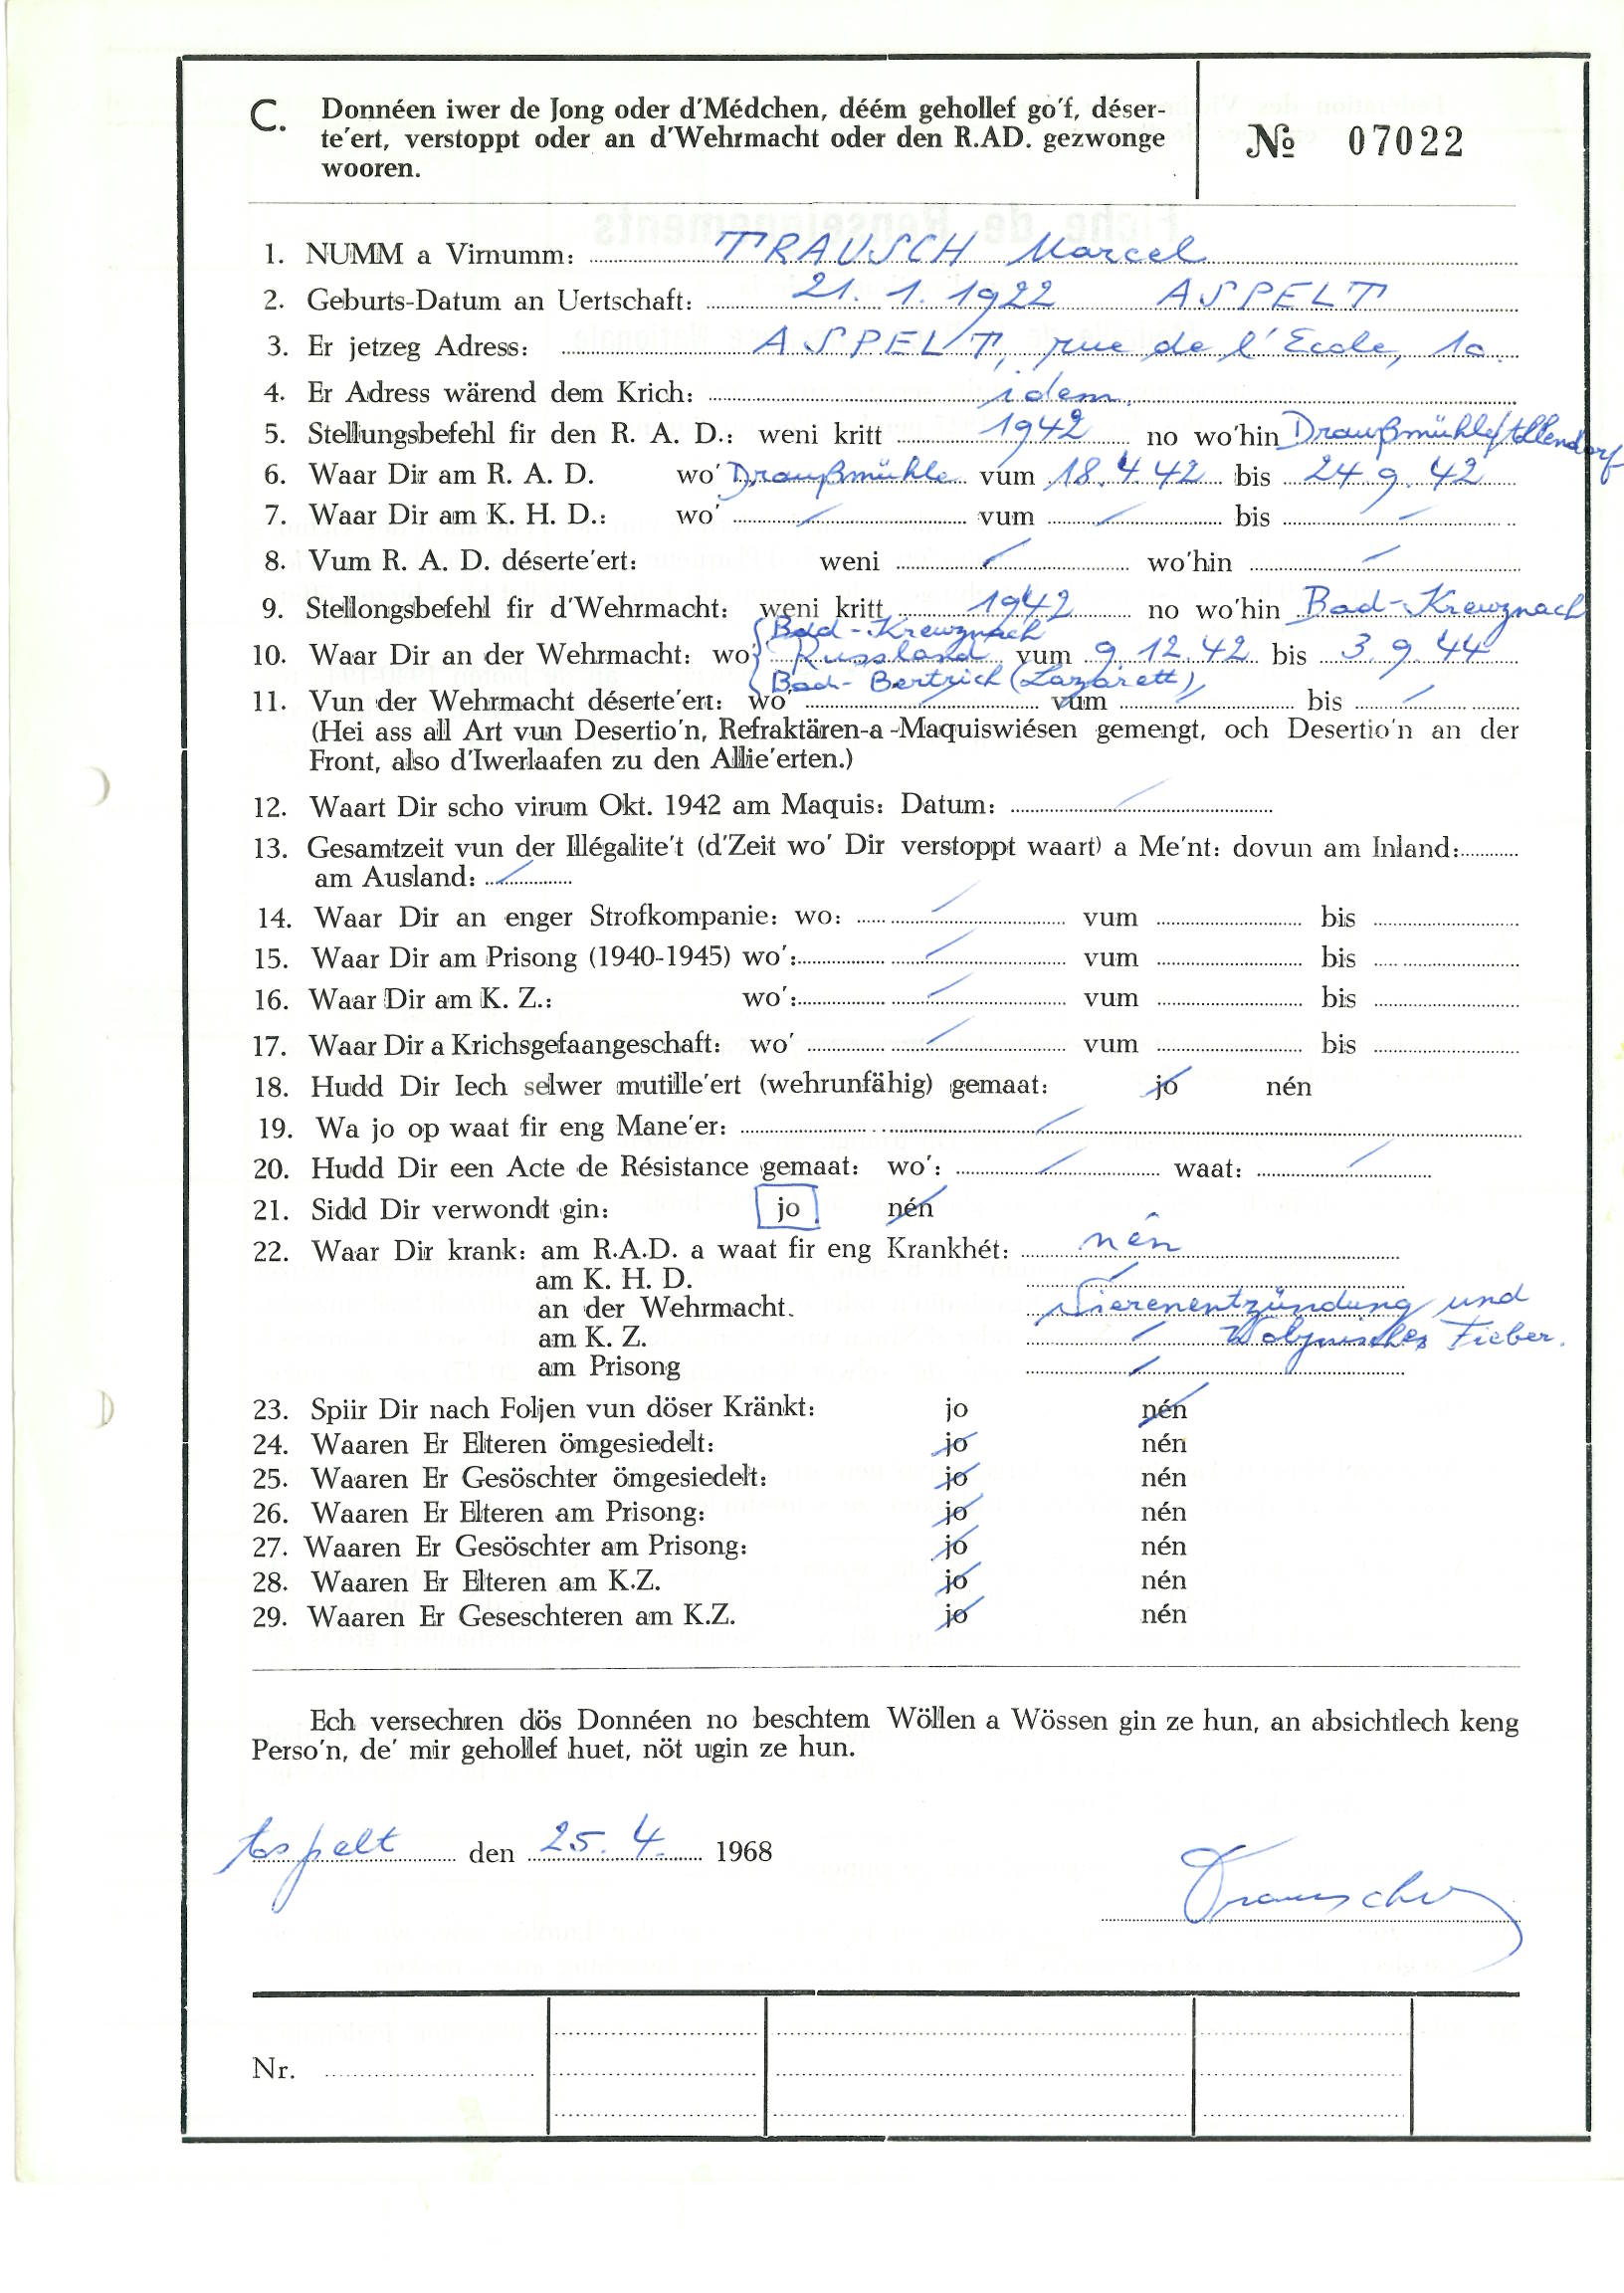 C. Donnéen iwer de Jong oder d'Médchen, déém gehollef go'f, déser-
te'ert, verstoppt oder an d'Wehrmacht oder den R.AD. gezwonge
wooren.
№ 07022
1. NUMM a Virnumm: TRAUSCH Marcel
2. Geburts-Datum an Uertschaft: 21. 1. 1922 ASPELT
3. Er jetzeg Adress: ASPELT, rue de l'Ecole, 10.
4. Er Adress wärend dem Krich: idem.
5. Stellungsbefehl fir den R. A. D.: weni kritt 1942 no wo'hin Draußmühle/Allendorf
6. Waar Dir am R. A. D. wo' Draußmühle vum 18.4.42 bis 24.9.42
7. Waar Dir am K. H. D.: wo' / vum / bis /
8. Vum R. A. D. déserte'ert: weni / wo'hin /
9. Stellongsbefehl fir d'Wehrmacht: weni kritt 1942 no wo'hin Bad-Kreuznach
Bad-Kreuznach
10. Waar Dir an der Wehrmacht: wo' Russland vum 9.12.42 bis 3.9.44
Bad-Bertrich (Lazarett)
11. Vun der Wehrmacht déserte'ert: wo' / vum / bis /
(Hei ass all Art vun Desertio'n, Refraktären-a-Maquiswiésen gemengt, och Desertio'n an der
Front, also d'Iwerlaafen zu den Allie'erten.)
12. Waart Dir scho virum Okt. 1942 am Maquis: Datum: /
13. Gesamtzeit vun der Illégalite't (d'Zeit wo' Dir verstoppt waart) a Me'nt: dovun am Inland:
am Ausland: /
14. Waar Dir an enger Strofkompanie: wo: / vum bis
15. Waar Dir am Prisong (1940-1945) wo': / vum bis
16. Waar Dir am K. Z.: wo': / vum bis
17. Waar Dir a Krichsgefaangeschaft: wo' / vum bis
18. Hudd Dir Iech selwer mutille'ert (wehrunfähig) gemaat: jo nén
19. Wa jo op waat fir eng Mane'er: /
20. Hudd Dir een Acte de Résistance gemaat: wo': / waat: /
21. Sidd Dir verwondt gin: jo nén
22. Waar Dir krank: am R.A.D. a waat fir eng Krankhét: nên
am K. H. D. /
an der Wehrmacht. Nierenentzündung und
am K. Z. / Wolynisches Fieber.
am Prisong /
23. Spiir Dir nach Foljen vun döser Kränkt: jo nén
24. Waaren Er Elteren ömgesiedelt: jo nén
25. Waaren Er Gesöschter ömgesiedelt: jo nén
26. Waaren Er Elteren am Prisong: jo nén
27. Waaren Er Gesöschter am Prisong: jo nén
28. Waaren Er Elteren am K.Z. jo nén
29. Waaren Er Geseschteren am K.Z. jo nén
Ech versechren dös Donnéen no beschtem Wöllen a Wössen gin ze hun, an absichtlech keng
Perso'n, de' mir gehollef huet, nöt ugin ze hun.
Aspelt den 25. 4. 1968
Trausch
Nr.